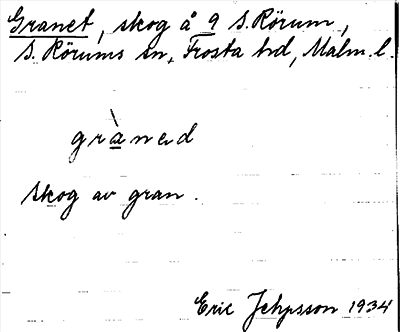 Granet, skog å 9 S. Rörum,
S. Rörums sn, Frosta hd, Malm. l.
gràned
skog av gran.
Eric Jehpsson 1934